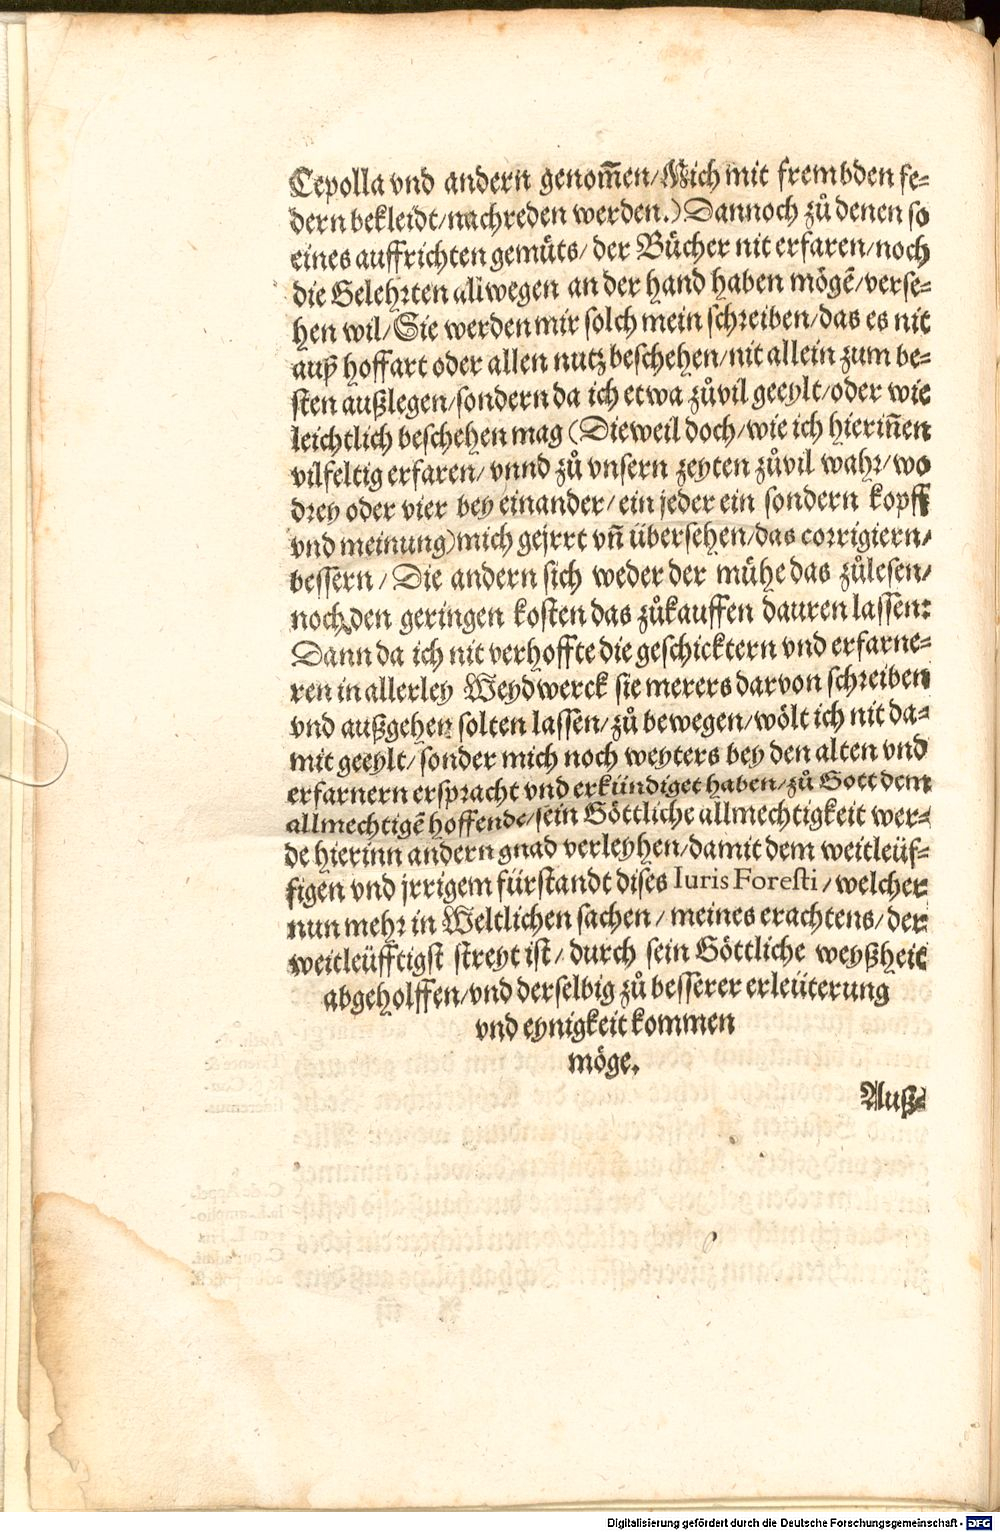 Cepolla vnd andern genom̃en/Mich mit frembden fe-
dern bekleidt/nachreden werden.) Dannoch zů denen so
eines auffrichten gemüts/ der Bücher nit erfaren/noch
die Gelehrten allwegen an der hand haben mögẽ/verse-
hen wil/Sie werden mir solch mein schreiben/das es nit
auß hoffart oder allen nutz beschehen/nit allein zum be-
sten außlegen/sondern da ich etwa zůvil geeylt/oder wie
leichtlich beschehen mag (Dieweil doch/wie ich hierin̄en
vilfeltig erfaren/ vnnd zů vnsern zeyten zůvil wahr/wo
drey oder vier bey einander/ein jeder ein sondern kopff
vnd meinung)mich gejrrt vn̄ übersehen/das corrigiern/
bessern/ Die andern sich weder der mühe das zůlesen/
noch den geringen kosten das zůkauffen dauren lassen:
Dann da ich nit verhoffte die geschicktern vnd erfarne-
ren in allerley Weydwerck sie merers darvon schreiben
vnd außgehen solten lassen/zů bewegen/wölt ich nit da-
mit geeylt/sonder mich noch weyters bey den alten vnd
erfarnern erspracht vnd erkündiget haben/zů Gott dem
allmechtigẽ hoffende/sein Göttliche allmechtigkeit wer-
de hierinn andern gnad verleyhen/damit dem weitleüf-
figen vnd jrrigem fürstandt dises Iuris Foresti/welcher
nun mehr in Weltlichen sachen/ meines erachtens/der
weitleüfftigst streyt ist/ durch sein Göttliche weyßheit
abgeholffen/vnd derselbig zů besserer erleüterung
vnd eynigkeit kommen
möge.
Auß-
Digitalisierung gefördert durch die Deutsche Forschungsgemeinschaft - DFG